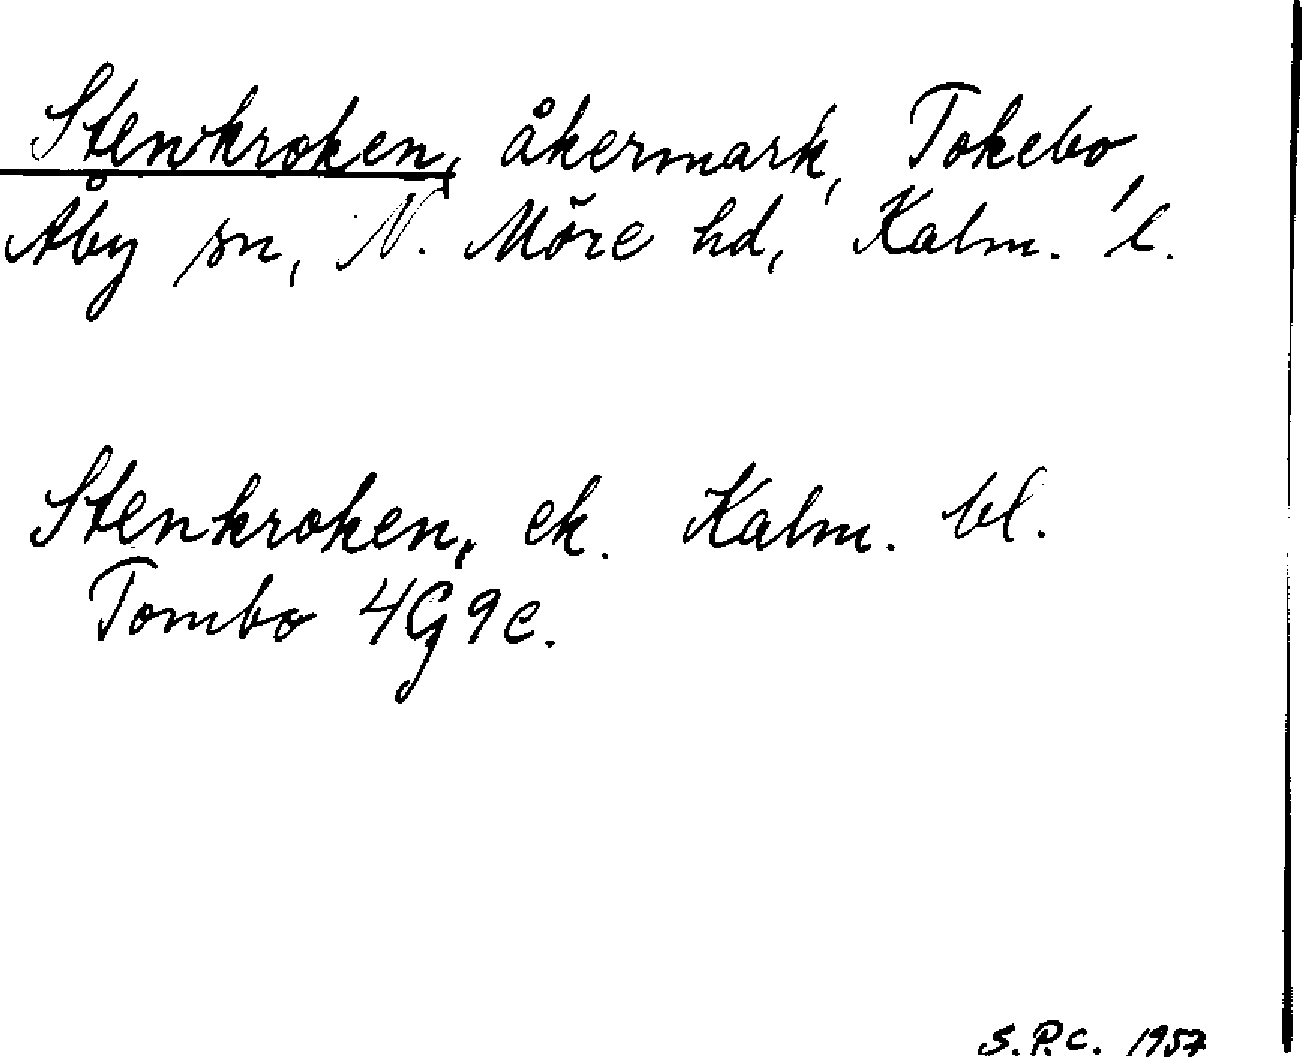 Stenkroken, åkermark, Tokebo,
Åby sn, N. Möre hd, Kalm. l.
Stenkroken, ek. Kalm. bl.
Tombo 4G9c.
S.P.C. 1957